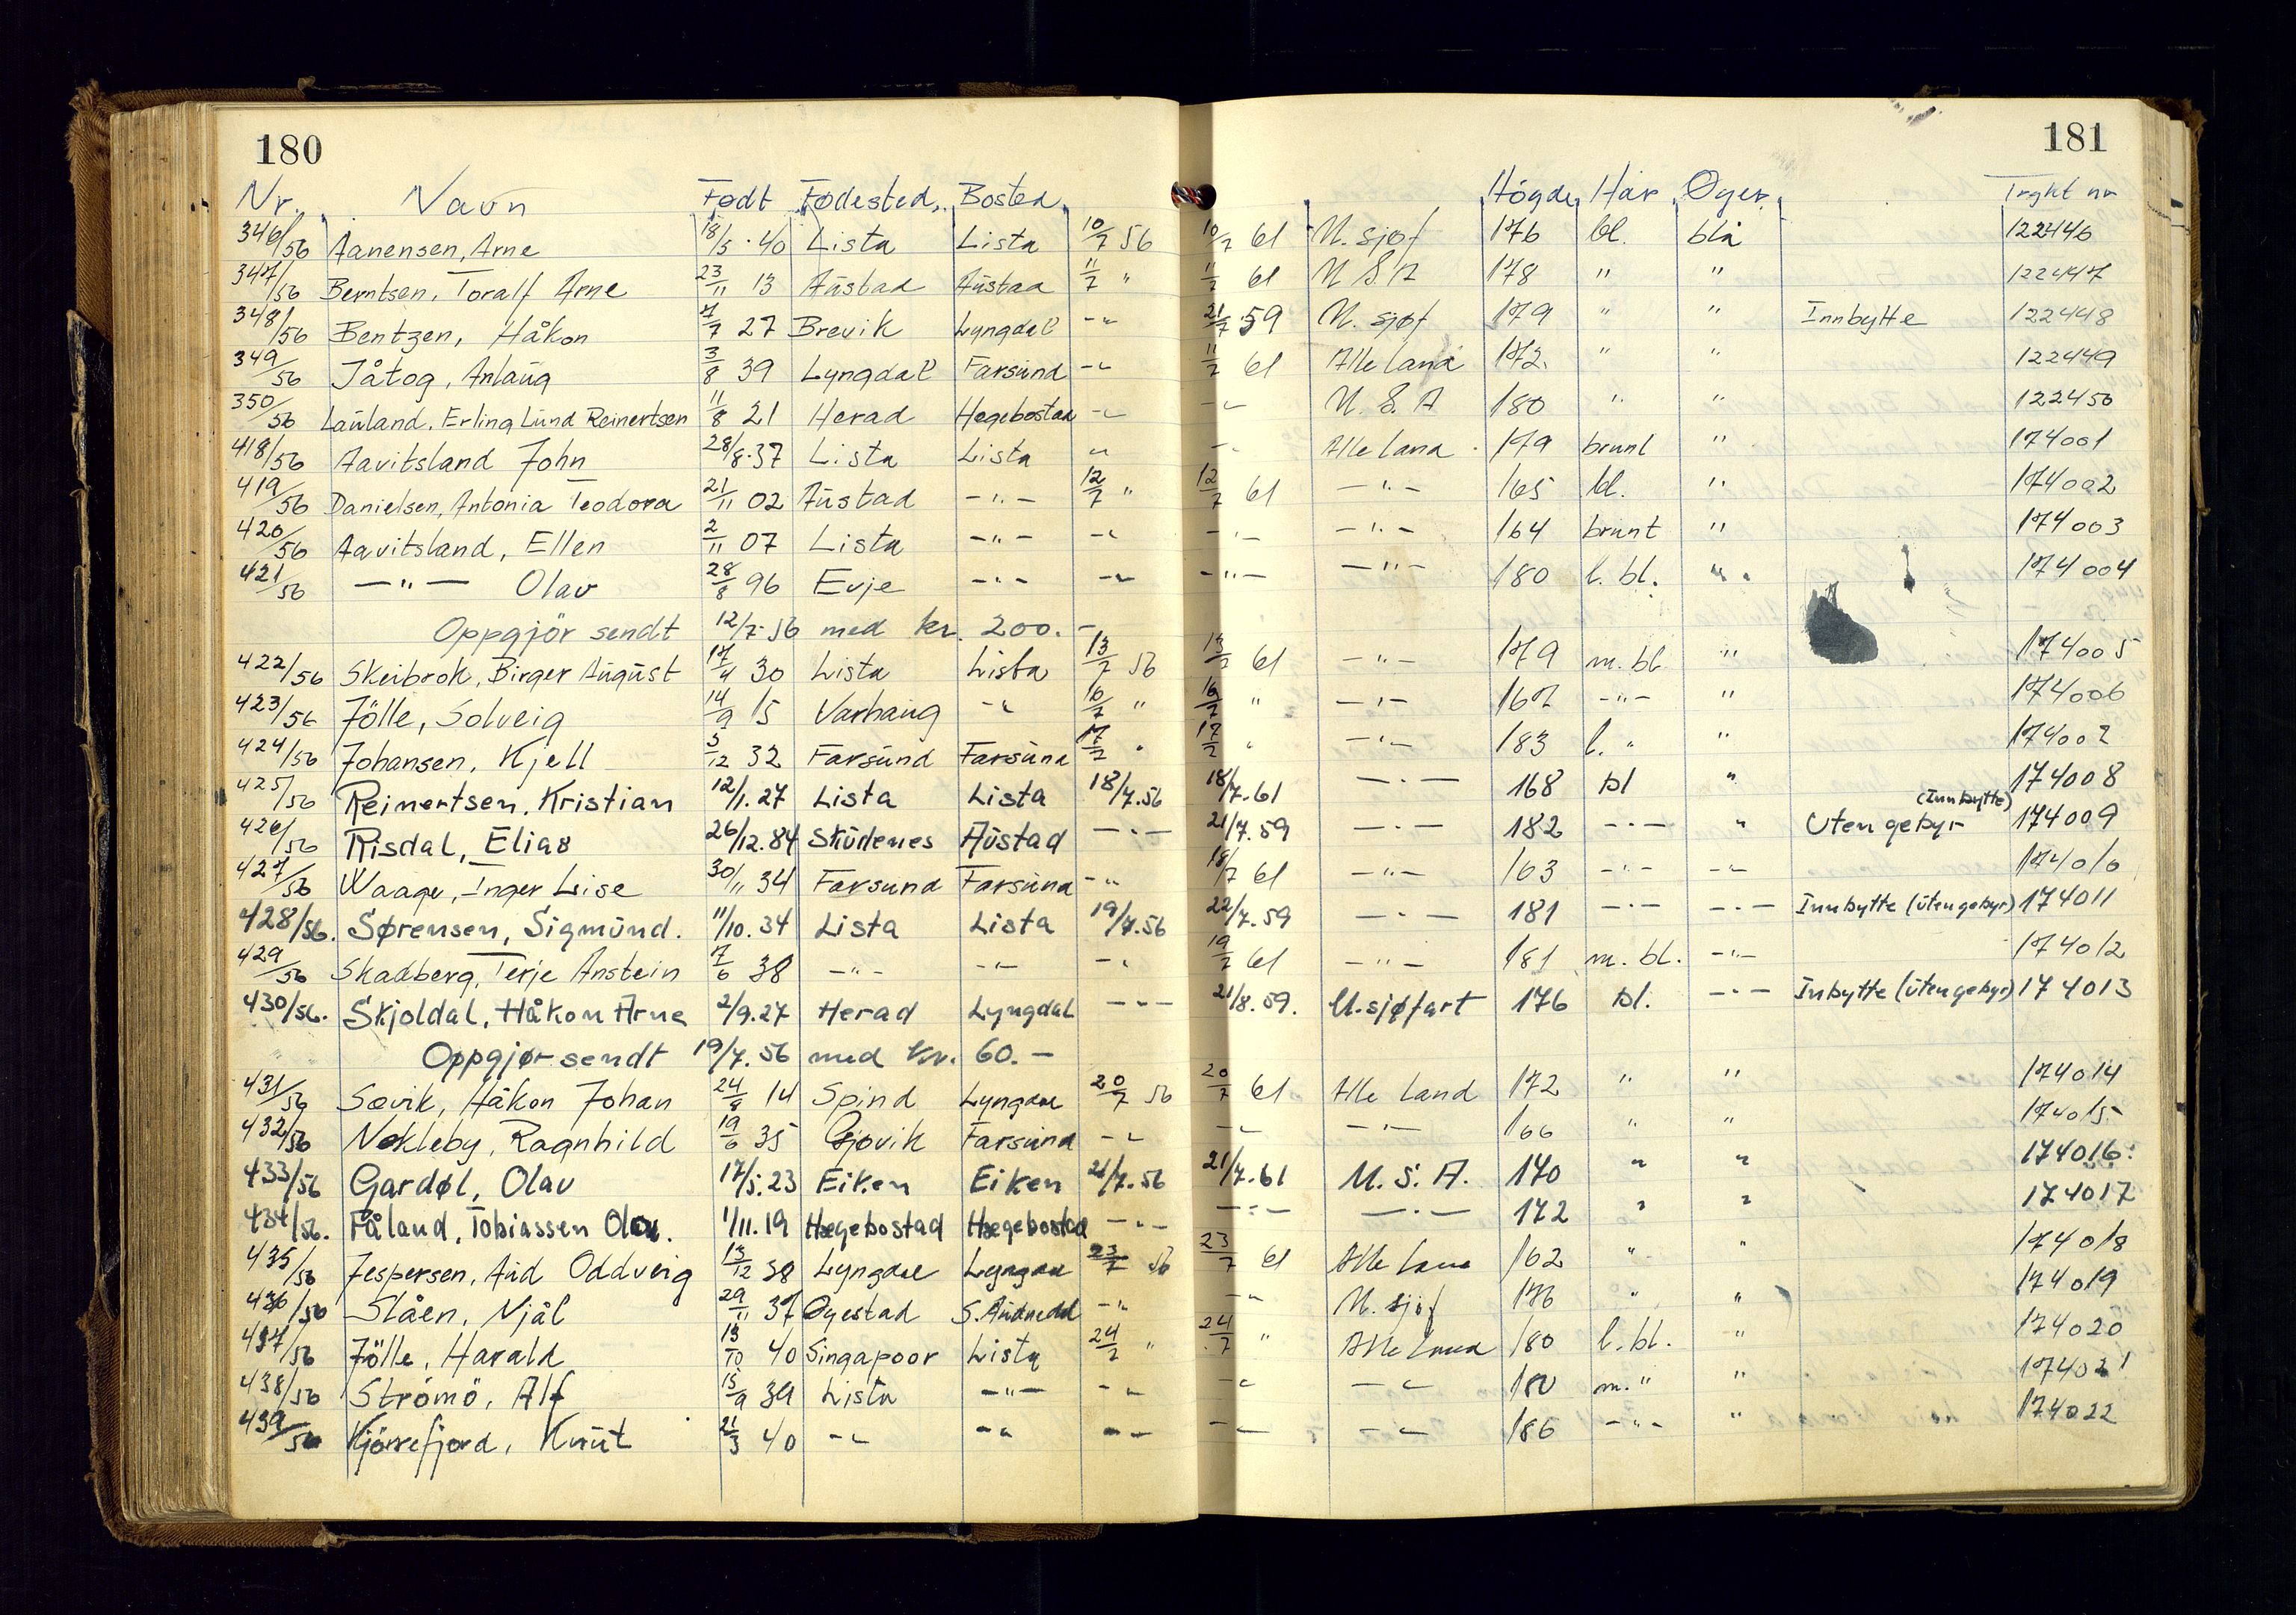 180 181
Nr. Navn Født Fødested Bosted Högde Hår Øyer Trykt nr
346/56 Aanensen, Arne 18/5.40 Lista Lista 10/7 56 10/7 61 U. sjøf 176 bl. blå 122446
347/56 Berntsen, Toralf Arne 23/11 13 Austad Austad 11/7 " 11/7 61 U S A 178 " " 122447
348/56 Bentzen, Håkon 7/7 27 Brevik Lyngdal -"- 21/7 59 U. sjøf 179 " " Innbytte 122448
349/56 Jåtog, Anlaug 3/8 39 Lyngdal Farsund -"- 11/7 61 Alle land 172. " " 122449
350/56 Lauland, Erling Lund Reinertsen 11/8 21 Herad Hegebostad -"- -"- U. S. A 180 " " 122450
418/56 Aavitsland John 28/8.37 Lista Lista " -"- Alle land 179 brunt " 174001
419/56 Danielsen, Antonia Teodora 21/11 02 Austad -"- 12/7 " 12/7 61 -"- 165 bl. " 174002
420/56 Aavitsland, Ellen 2/11 07 Lista -"- -"- -"- -"- 164 brunt " 174003
421/56 -"- Olav 28/8 96 Evje -"- -"- -"- -"- 180 l. bl. " 174004
Oppgjör sendt 12/7-56 med kr. 200.-
422/56 Skeibrok, Birger August 17/4 30 Lista Lista 13/7 56 13/7 61 -"- 179 m. bl. " 174005
423/56 Jölle, Solveig 14/9 15 Varhaug -"- 16/7 " 16/7 " -"- 167 -"- " 174006
424/56 Johansen, Kjell 5/12 32 Farsund Farsund 17/7 " 17/7 " -"- 183 l. " " 174007
425/56 Reinertsen, Kristian 12/1.27 Lista Lista 18/7.56 18/7.61 -"- 168 bl " 174008
426/56 Risdal, Elias 26/12.84 Skudenes Austad -"- 21/7.59 -"- 182 -"- " Uten gebyr (Innbytte) 174009
427/56 Waage, Inger Lise 30/11 34 Farsund Farsund -"- 18/7 61 -"- 163 -"- -"- 174010
428/56. Sørensen, Sigmund. 11/10.34 Lista Lista 19/7.56 22/7.59 -"- 181 -"- -"- Innbytte (uten gebyr) 174011
429/56 Skadberg, Terje Anstein 7/6 38 -"- -"- -"- 19/7 61 -"- 181 m. bl. -"- 174012
430/56. Skjoldal, Håkon Arne 2/9.27 Herad Lyngdal -"- 21/8.59. U. sjøfart 176 bl. -"- Inbytte (uten gebyr) 174013
Oppgjør sendt 19/7.56 med kr. 60.-
431/56 Søvik, Håkon Johan 24/8 14 Spind Lyngdal 20/7 56 20/7 61 Alle Land 172 " " 174014
432/56 Nøkleby, Ragnhild 19/6 35 Gjøvik Farsund -"- -"- -"- 166 " " 174015
433/56 Gardøl, Olav 17/5.23 Eiken Eiken 21/7.56 21/7.61 U. S. A. 170 " " 174016
434/56. Fåland, Tobiassen Olav. 1/11.19 Hægebostad Hægebostad -"- -"- -"- 172 " " 174017
435/56 Jespersen, Aud Oddveig 13/12 38 Lyngdal Lyngdal 23/7 56 23/7 61 Alle land 162 " " 174018
436/56 Slåen, Njål 29/11 37 Øyestad S. Audnedal -"- -"- U. sjøf 176 " " 174019
437/56 Jölle, Harald 13/10 40 Singapoor Lista 24/7 " 24/7 " Alle land 180 l. bl. " 174020
438/56 Strömö, Alf 15/9 39 Lista -"- -"- -"- -"- 180 m. " " 174021
439/56 Kjörrefjord, Knut 21/3 40 -"- -"- -"- -"- -"- 186 -"- " 174022